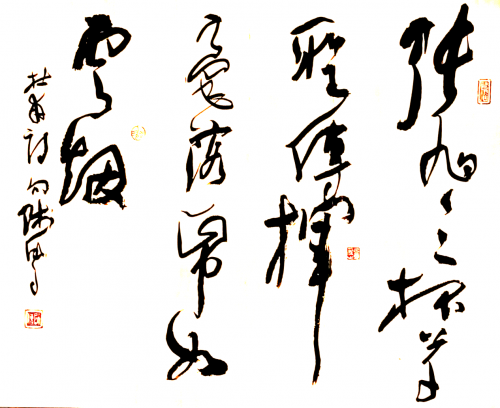 張旭三杯草
聖傳揮
毫落帋如
雲煙
杜甫詩句